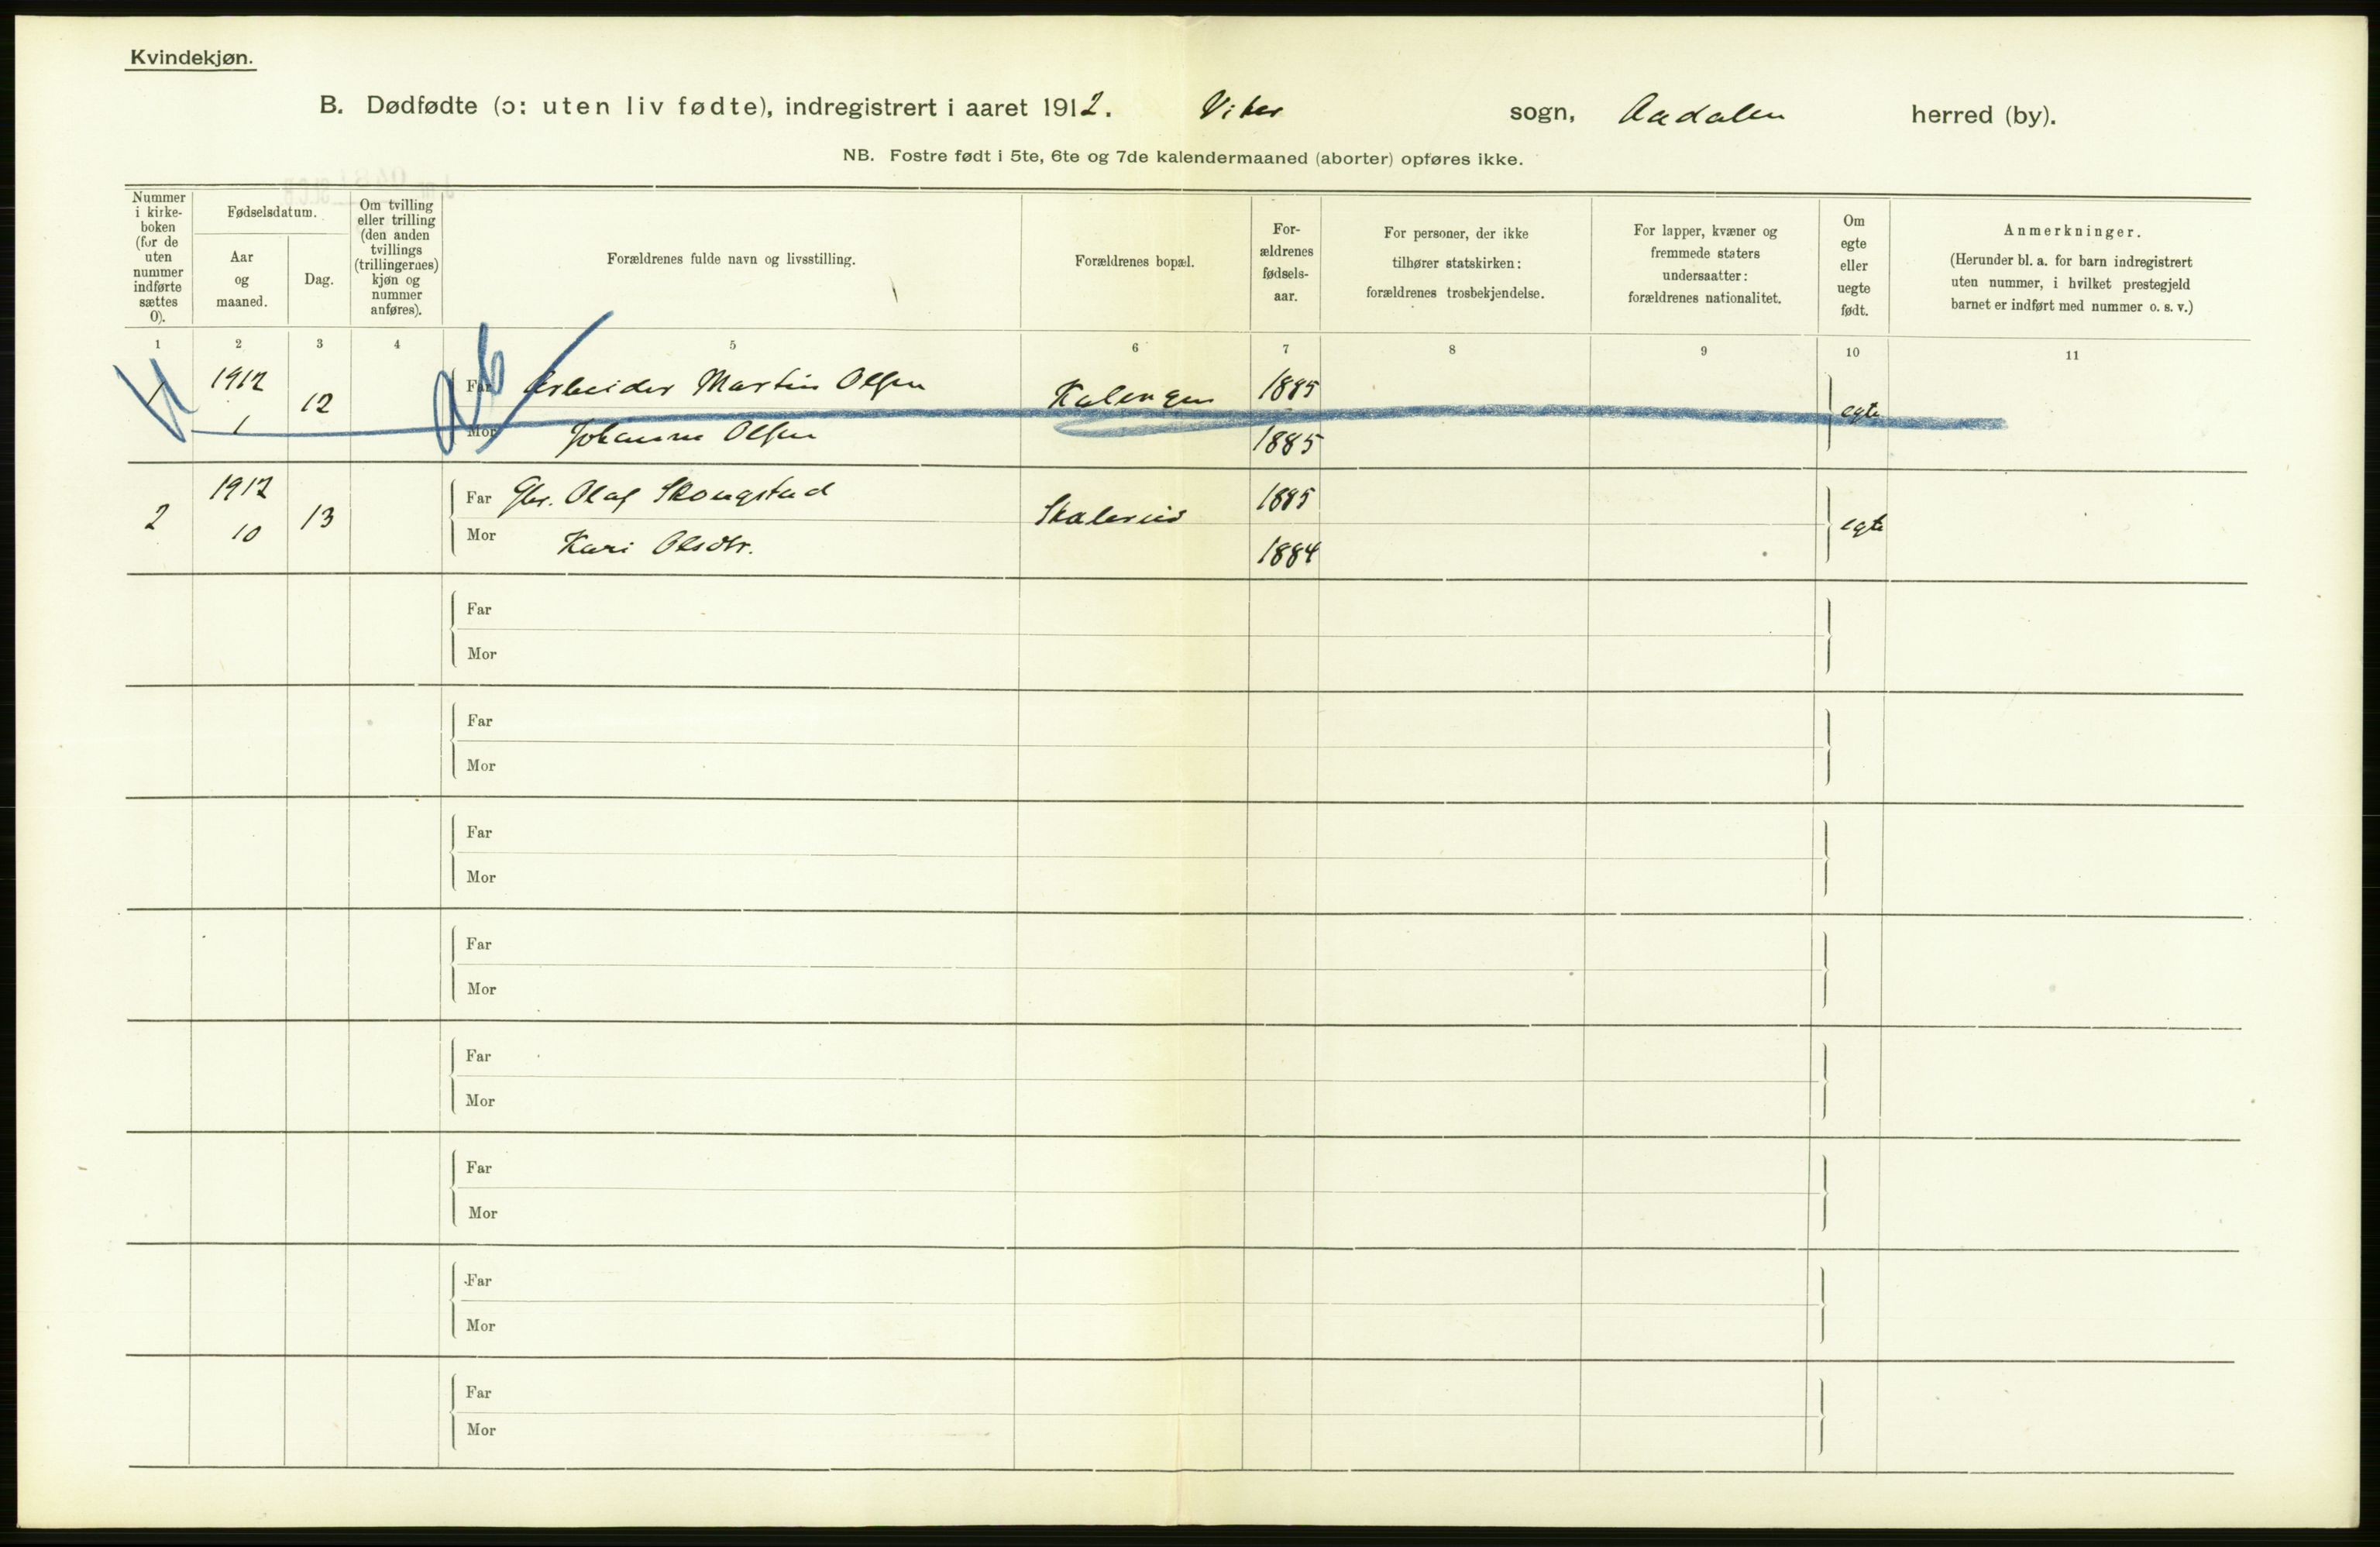 Kvindekjøn.
B. Dødfødte (ɔ: uten liv fødte), indregistrert i aaret 1912. Viker sogn, Aadalen herred (by).
NB. Fostre født i 5te, 6te og 7de kalendermaaned (aborter) opføres ikke.
Nummer
i kirke-
boken
(for de
uten
nummer
indførte
sættes
0).
Fødselsdatum.
Aar
og
maaned.
Dag.
Om tvilling
eller trilling
(den anden
tvillings
(trillingernes)
kjøn og
nummer
anføres).
Forældrenes fulde navn og livsstilling.
Forældrenes bopæl.
For-
ældrenes
fødsels-
aar.
For personer, der ikke
tilhører statskirken:
forældrenes trosbekjendelse.
For lapper, kvæner og
fremmede staters
undersaatter:
forældrenes nationalitet.
Om
egte
eller
uegte
født.
Anmerkninger.
(Herunder bl. a. for barn indregistrert
uten nummer, i hvilket prestegjeld
barnet er indført med nummer o. s. v.)
1 2 3 4 5 6 7 8 9 10 11
1 1912 12 Far Arbeider Martin Olsen 1885
1 Mor Johanne Olsen 1885 egte
2 1912 13 Far Gbr. Olaf Skougstad 1885
10 Mor Kari Olsdtr. 1884 egte
Far
Mor
Far
Mor
Far
Mor
Far
Mor
Far
Mor
Far
Mor
Far
Mor
Far
Mor